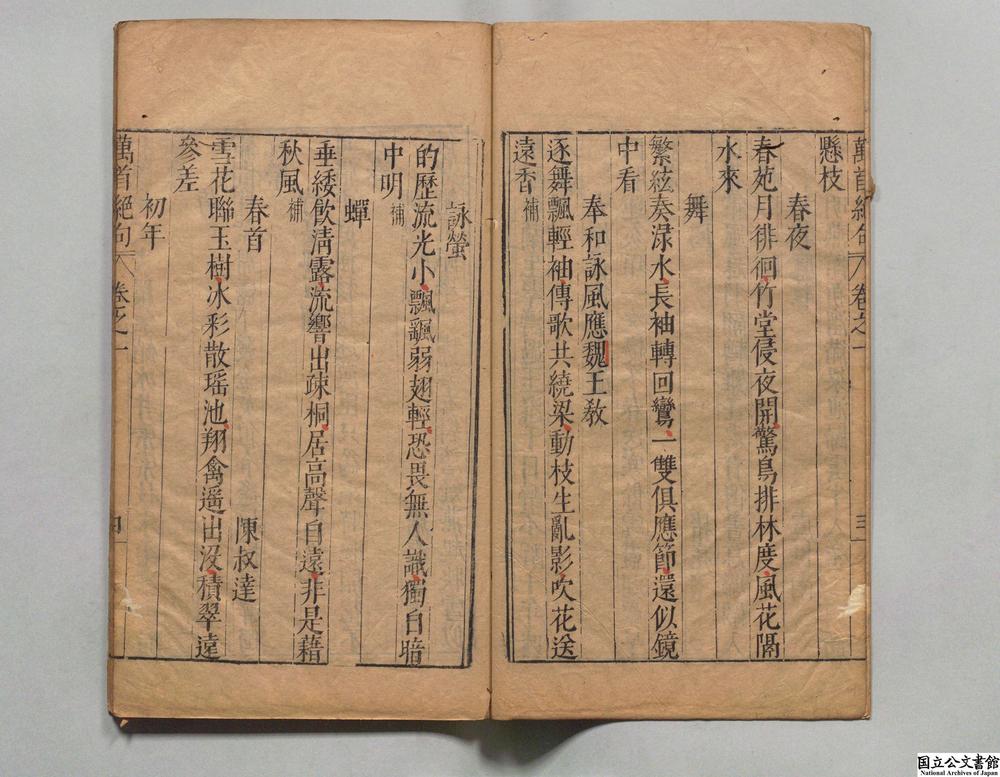 萬首絕句 卷之一 三
懸枝
春夜
春苑月徘徊竹堂侵夜開驚鳥排林度風花隔
水來
舞
繁絃奏淥水長袖轉回鸞一雙俱應節還似鏡
中看
奉和詠風應魏王教
逐舞飄輕袖傳歌共繞梁動枝生亂影吹花送
遠香補
詠螢
的歷流光小飄颻弱翅輕恐畏無人識獨自暗
中明補
蟬
垂緌飲清露流響出疎桐居高聲自遠非是藉
秋風補
春首 陳叔達
雪花聯玉樹冰彩散瑤池翔禽遥出沒積翠遠
參差
初年
萬首絕句 卷之一 四
国立公文書館
National Archives of Japan